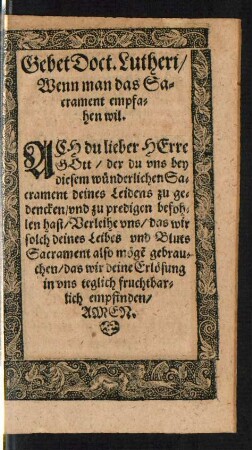 Gebet Doct. Lutheri/
Wenn man das Sa-
crament empfa-
hen wil.
ACH du lieber HErre
GOtt / der du vns bey
diesem wünderlichen Sa-
crament deines Leidens zu ge-
dencken/vnd zu predigen befoh-
len hast/Verleihe vns/das wir
solch deines Leibes vnd Bluts
Sacrament also mögẽ gebrau-
chen/das wir deine Erlösung
in vns teglich fruchtbar-
lich empfinden/
AMEN.